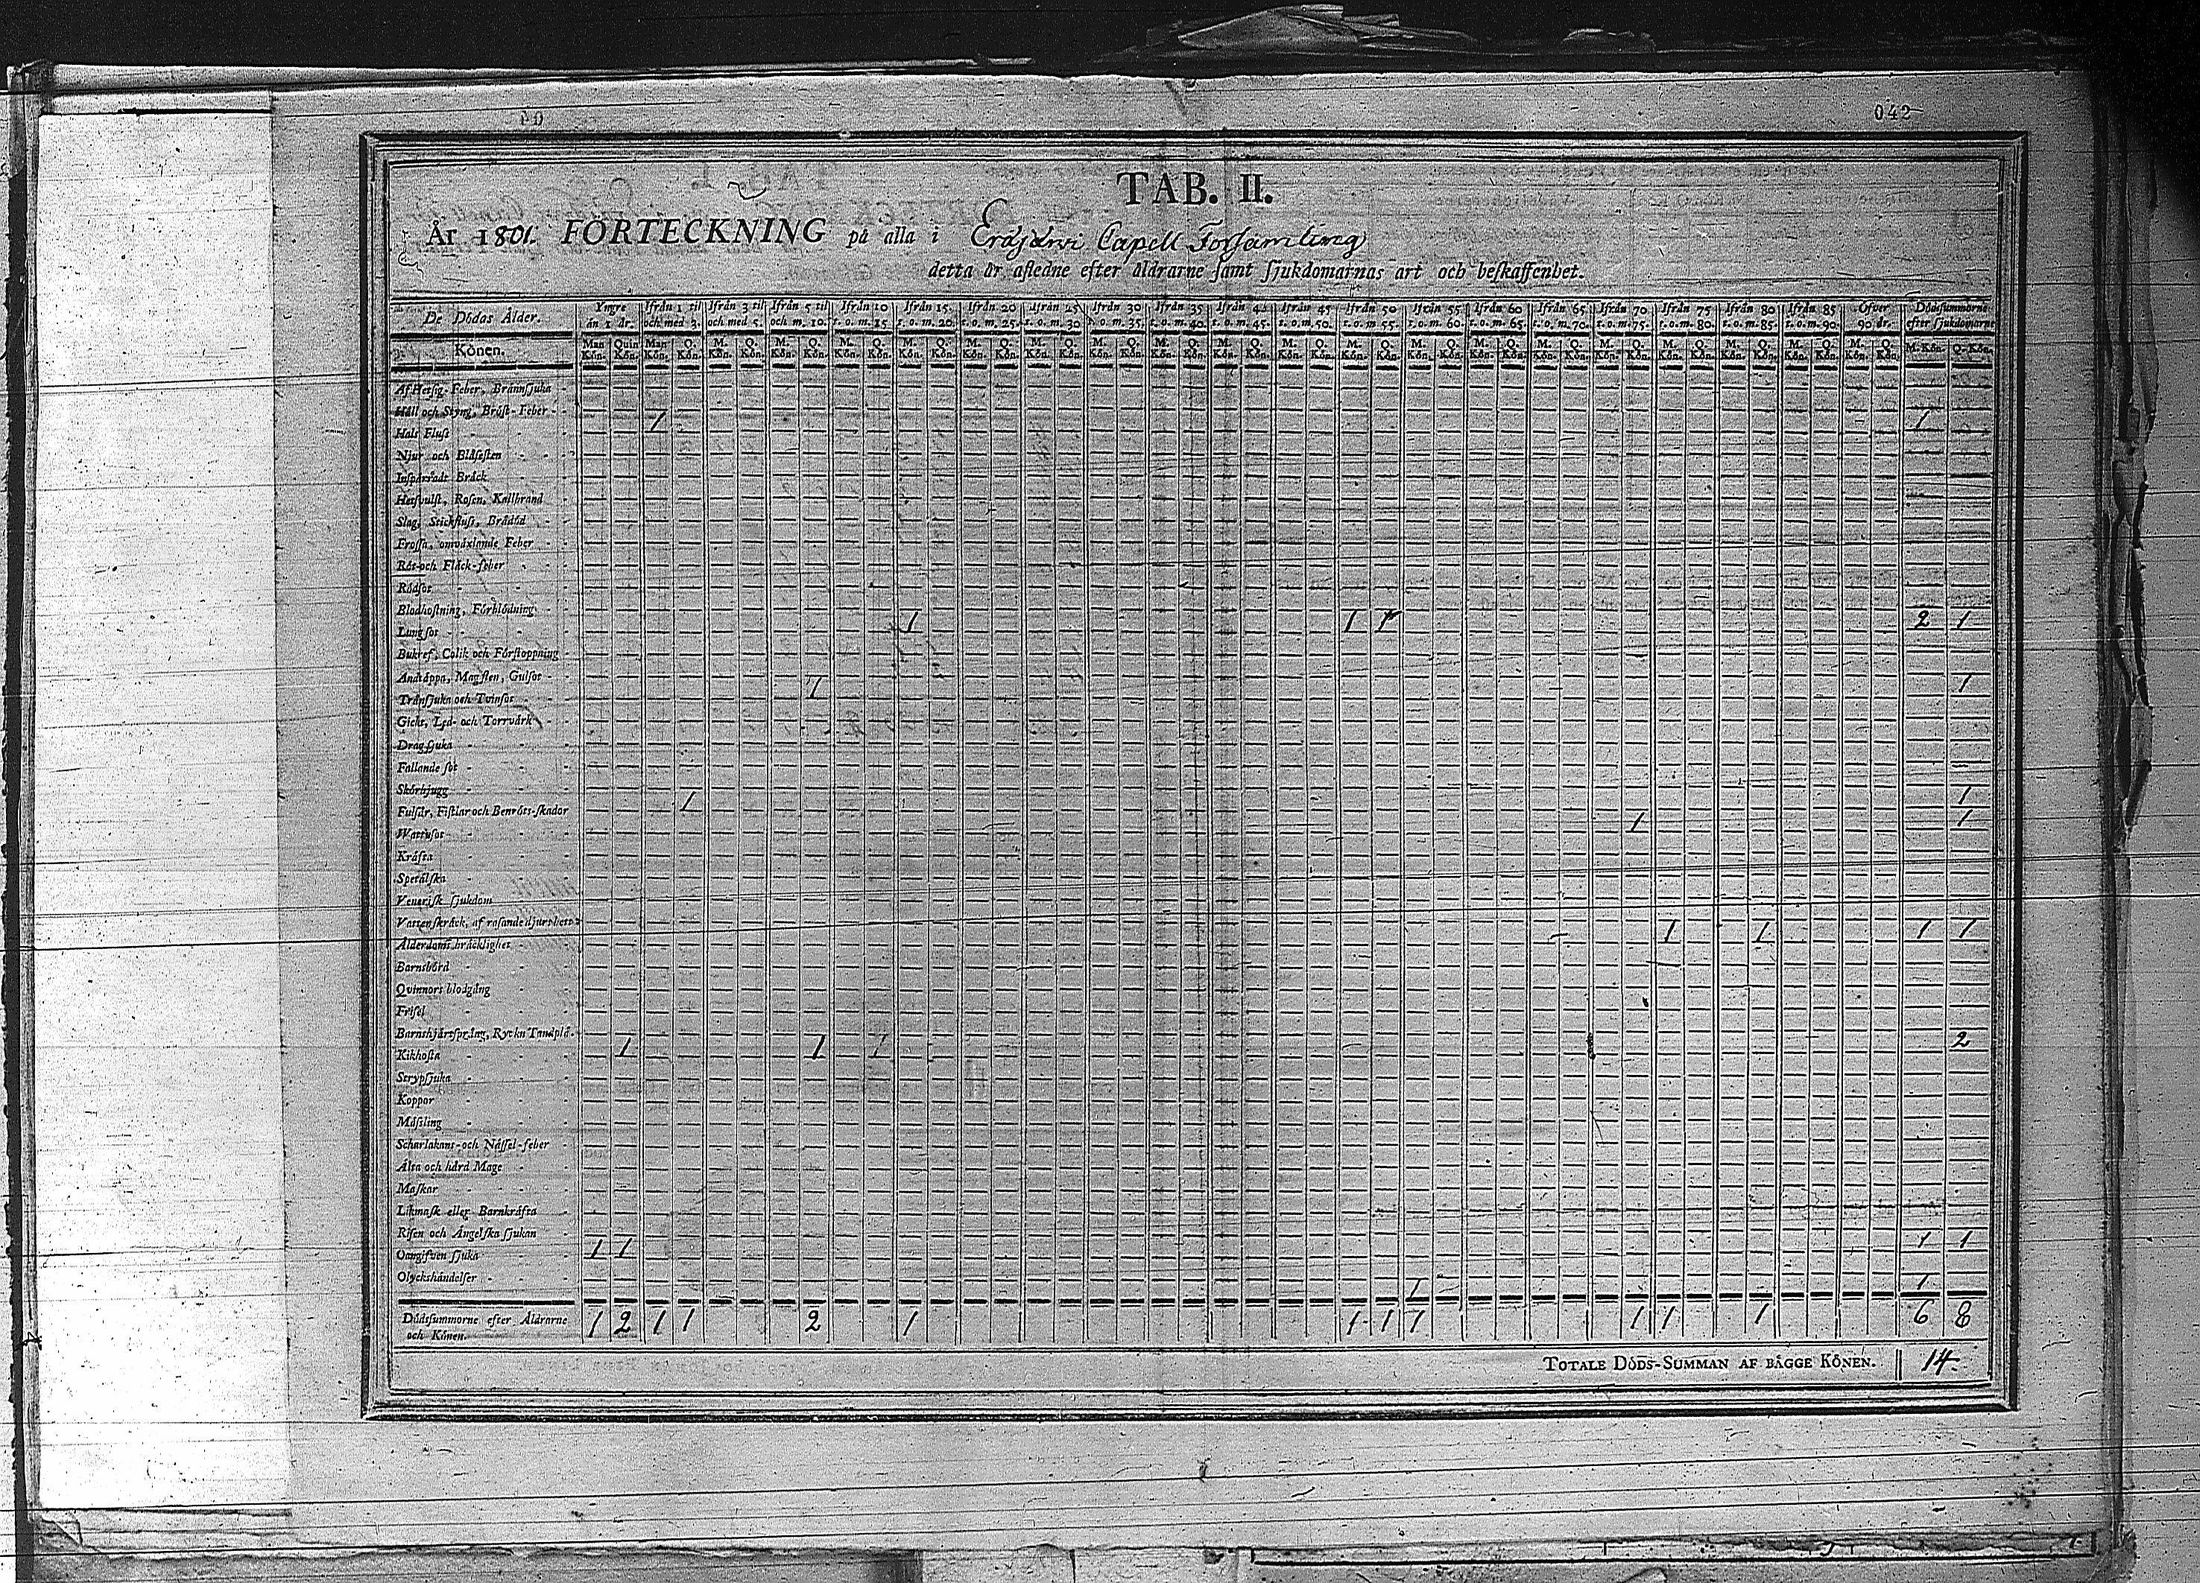 042
TAB. II.
År 1801. FÖRTECKNING på alla i Eräjärvi Capell Församling
detta år afledne efter åldrarne samt sjukdomarnas art och beskaffenhet.
De Dödas Ålder. Yngre än 1 år. Ifrån 1 til och med 3. Ifrån 3 til och med 5. Ifrån 5 til och m. 10. Ifrån 10 t. o. m. 15. Ifrån 15. t. o. m. 20. Ifrån 20 t. o. m. 25. Ifrån 25 t. o. m. 30. Ifrån 30 t. o. m. 35. Ifrån 35 t. o. m. 40. Ifrån 40 t. o. m. 45. Ifrån 45 t. o. m. 50. Ifrån 50 t. o. m. 55. Ifrån 55 t. o. m. 60. Ifrån 60 t. o. m. 65. Ifrån 65 t. o. m. 70. Ifrån 70 t. o. m. 75. Ifrån 75 t. o. m. 80. Ifrån 80 t. o. m. 85. Ifrån 85 t. o. m. 90. Öfver 90 år. Dödssummorne efter sjukdomarne
Könen. Man Kön. Quin Kön. Man Kön. Q. Kön. M. Kön. Q. Kön. M. Kön. Q. Kön. M. Kön. Q. Kön. M. Kön. Q. Kön. M. Kön. Q. Kön. M. Kön. Q. Kön. M. Kön. Q. Kön. M. Kön. Q. Kön. M. Kön. Q. Kön. M. Kön. Q. Kön. M. Kön. Q. Kön. M. Kön. Q. Kön. M. Kön. Q. Kön. M. Kön. Q. Kön. M. Kön. Q. Kön. M. Kön. Q. Kön. M. Kön. Q. Kön. M. Kön. Q. Kön. M. Kön. Q. Kön. M. Kön. Q. Kön.
Af Hetsig Feber, Brännsjuka
Håll och Styng, Bröst-Feber
Hals Fluss 1 1
Njur och Blåsesten
Inspärradt Bråck
Hetsvulst, Rosen, Kallbrand
Slag, Stickfluss, Brådöd
Frossa, omväxlande Feber
Röt-och Fläck-feber
Rödsot
Blodhostning, Förblödning
Lungsot 1 1 1 2 1
Bukref, Colik och Förstoppning
Andtäppa, Magsten, Gulsot
Trånsjuka och Tvinsot 1 1
Gickt, Led- och Torrvärk
Dragsjuka
Fallande sot
Skörbjugg
Fulslår, Fistlar och Benröts-skador 1 1
Wattusot 1 1
Kräfta
Spetälska
Venerisk sjukdom
Vattenskräck, af rasande djurs bett
Ålderdoms bräcklighet 1 1 1 1
Barnsbörd
Qvinnors blodgång
Frisel
Barnshjärtsprång, Ryck
Kikhosta 1 1 1 2
Strypsjuka
Koppor
Mässling
Scharlakans-och Nässel-feber
Älta och hård Mage
Maskar
Likmask eller Barnkräfta
Risen och Ängelska sjukan
Oangifven sjuka 1 1 1 1
Olyckshändelser 1 1
Dödssummorne efter Åldrarne och Könen. 1 2 1 1 2 1 1 1 1 1 1 1 6 8
TOTALE DÖDS-SUMMAN AF BÅGGE KÖNEN. 14.